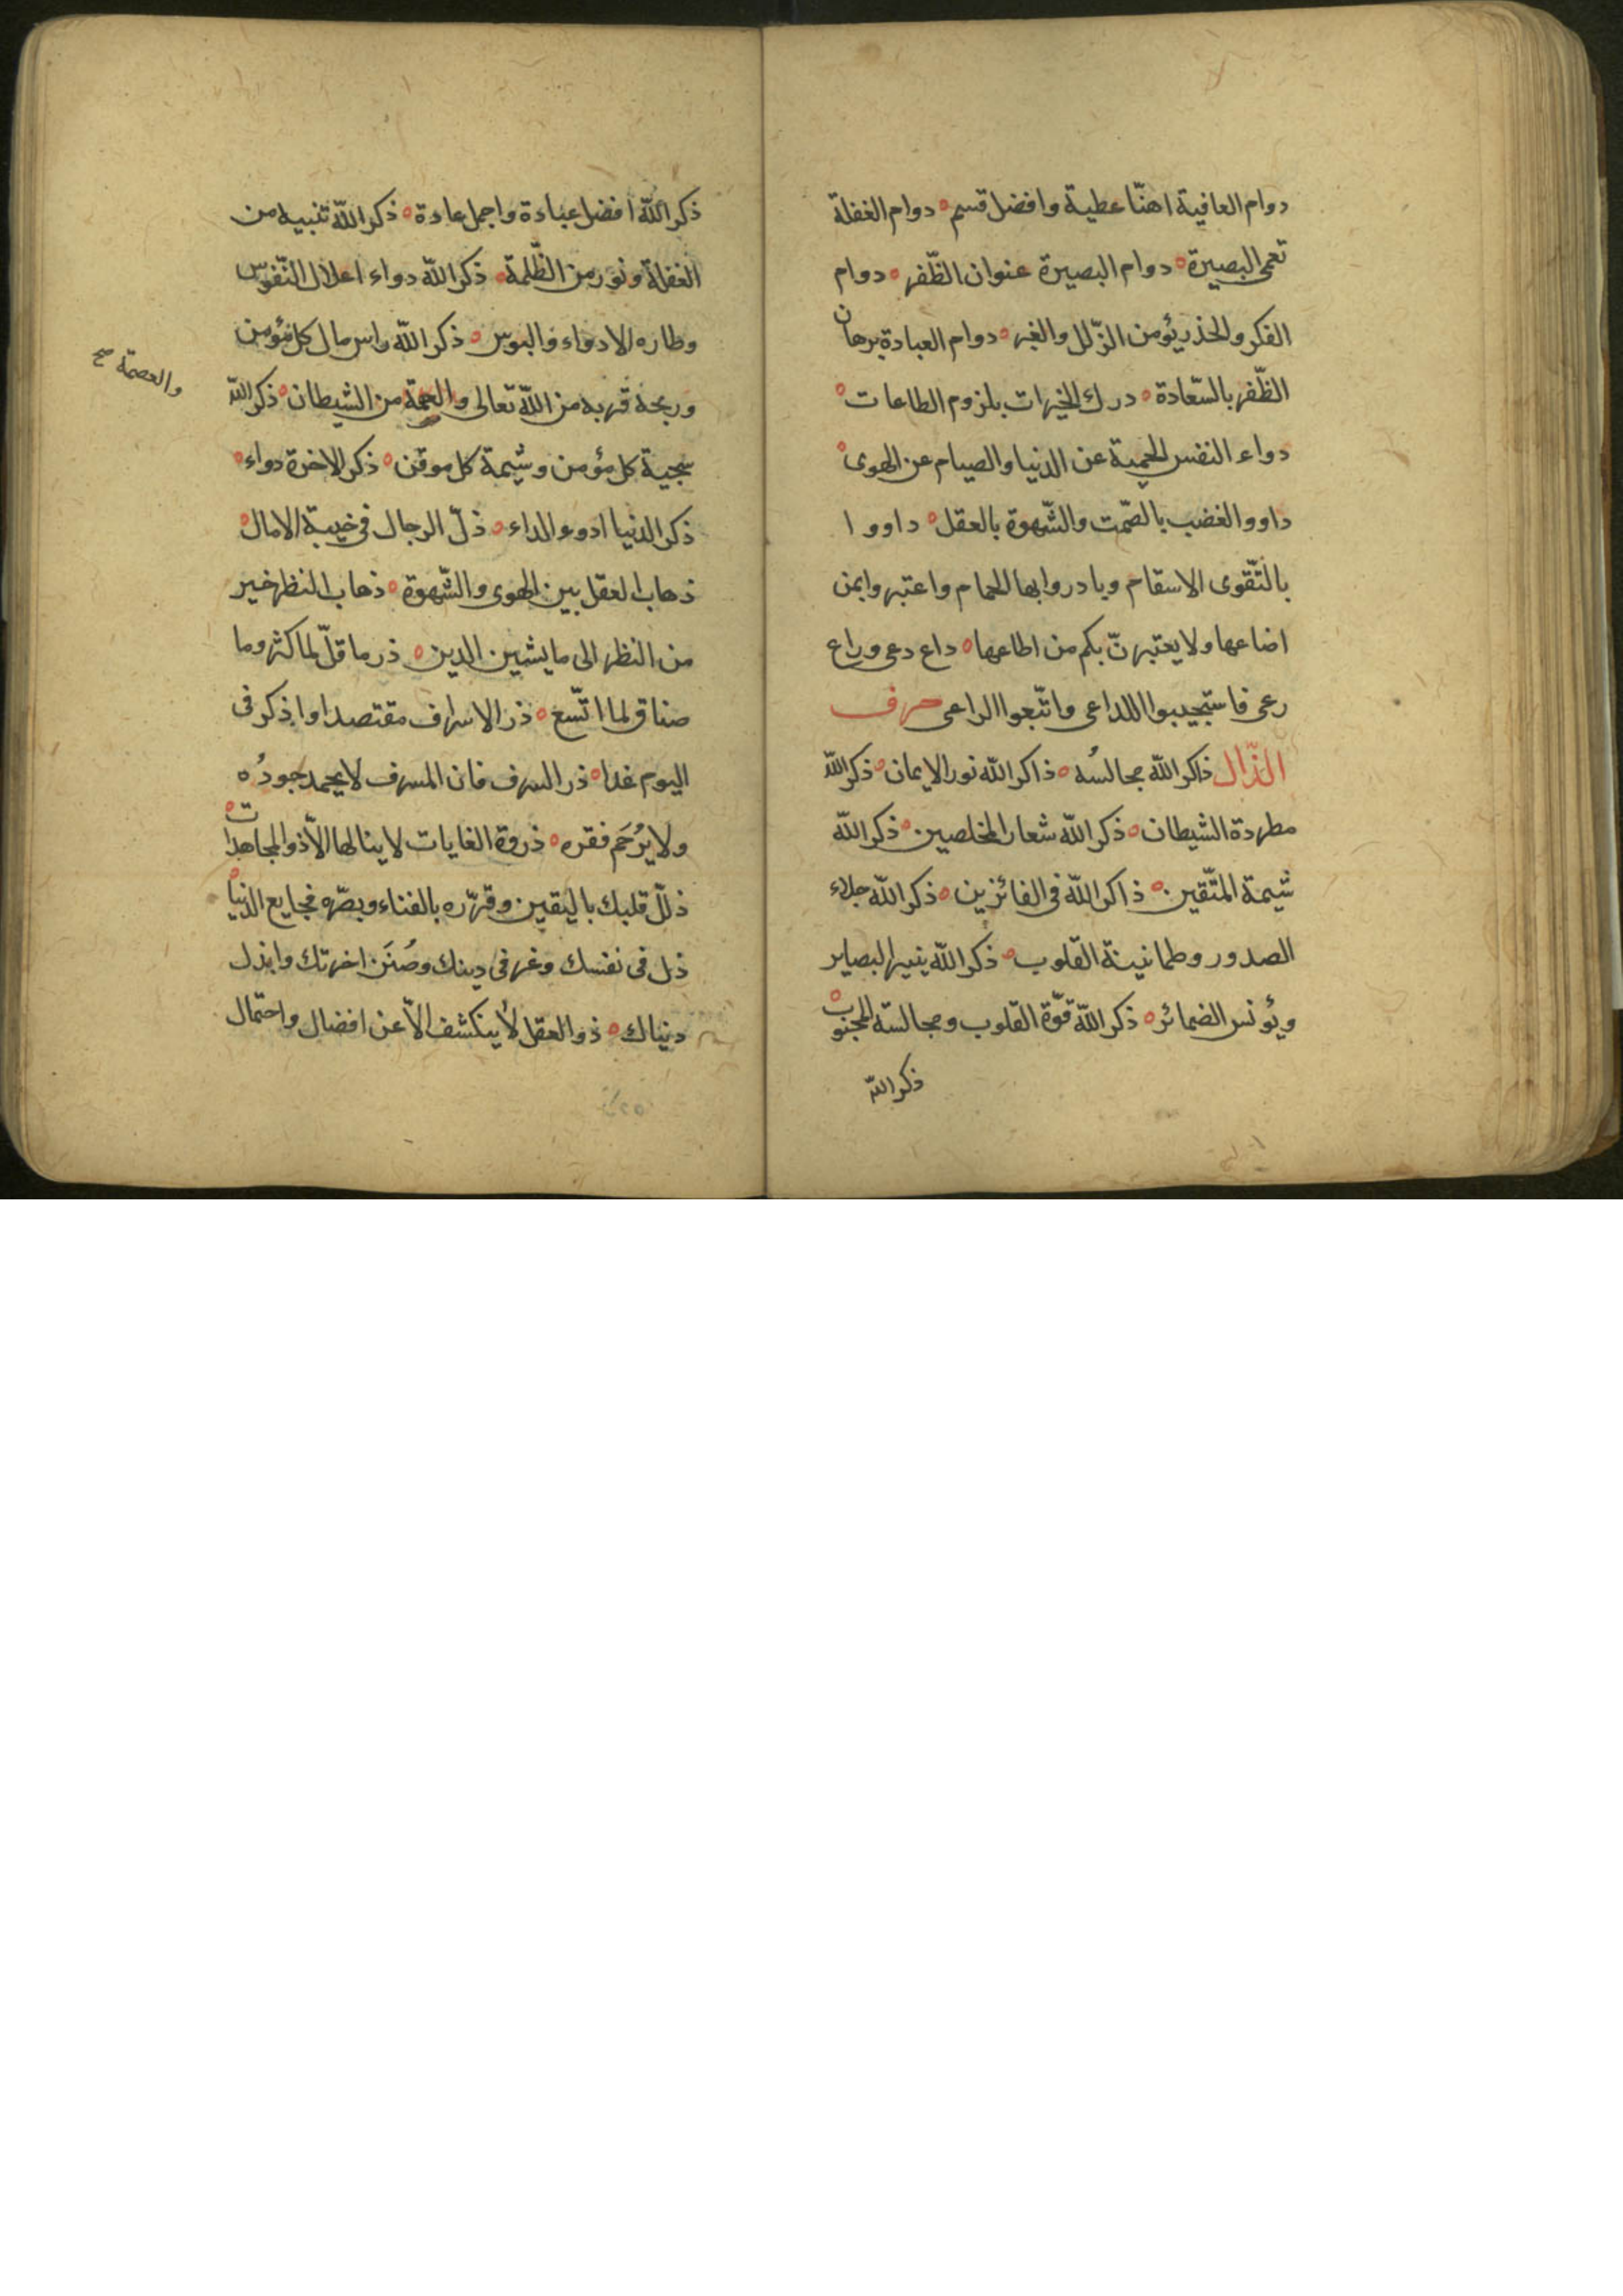 دوام العافية اهنّا عطية وافضل قسم ه دوام الغفلة
تعمى البصيرة ه دوام البصيرة عنوان الظّفر ه دوام
الفكر والحذر يؤمن الزّلل والغير ه دوام العبادة برهان
الظّفر بالسّعادة ه درك الخيرات بلزوم الطاعات ه
دواء النفس الحمية عن الدنيا والصيام عن الهوى ه
داووا الغضب بالصّمت والشّهوة بالعقل ه داووا
بالتّقوى الاسقام وبادروا بها الحمام واعتبروا بمن
اضاعها ولا يعتبرنّ بكم من اطاعها ه داع دعى وراع
رعى فاستجيبوا للداعى واتّبعوا الراعى حرف
الذّال ذاكر الله مجالسُه ه ذاكر الله نور الايمان ه ذكر الله
مطردة الشيطان ه ذكر الله شعار المخلصين ه ذكر الله
شيمة المتّقين ه ذاكر الله فى الفائزين ه ذكر الله جلاء
الصدور وطمانينة القلوب ه ذكر الله ينير البصاير
ويؤنس الضمائر ه ذكر الله قوّة القلوب ومجالسة المحبوب ه
ذكر الله
ذكر الله افضل عبادة واجمل عادة ه ذكر الله تنبيه من
الغفلة ونور من الظّلمة ه ذكر الله دواء اعلال النّفوس
وطاره الادواء والبوس ه ذكر الله راس مال كل مؤمن
وربحه قربه من الله تعالى والعصمة من الشيطان ه ذكر الله
والعصمة صح
سجية كل مؤمن وشيمة كل موقن ه ذكر الاخرة دواء ه
ذكر الدنيا ادوء الداء ه ذلّ الرجال فى خيبة الامال ه
ذهاب العقل بين الهوى والشّهوة ه ذهاب النظر خير
من النظر الى ما يشين الدين ه ذر ما قلّ لما كثر وما
ضاق لما اتّسع ه ذر الاسراف مقتصدا واذكر فى
اليوم غدا ه ذر السرف فان المسرف لا يحمد جودُه
ولا يُرحَم فقره ه ذروة الغايات لا ينالها الّا ذو المجاهدات ه
ذلّل قلبك باليقين وقرّره بالفناء وبصّره فجايع الدنيا ه
ذل فى نفسك وعز فى دينك وصُنَن اخرتك وابذل
دنياك ه ذو العقل لا ينكشف الّا عن افضال واحتمال